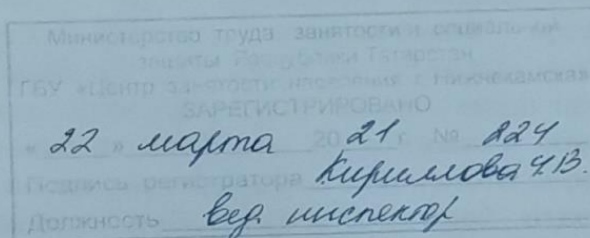 Министерство труда занятости и социальной
защиты Республики Татарстан
ГБУ «Центр занятости населения г. Нижнекамска»
ЗАРЕГИСТРИРОВАНО
« 22 » марта 20 21 г. № 224
Подпись регистратора Кириллова Ч.В.
Должность вед. инспектор